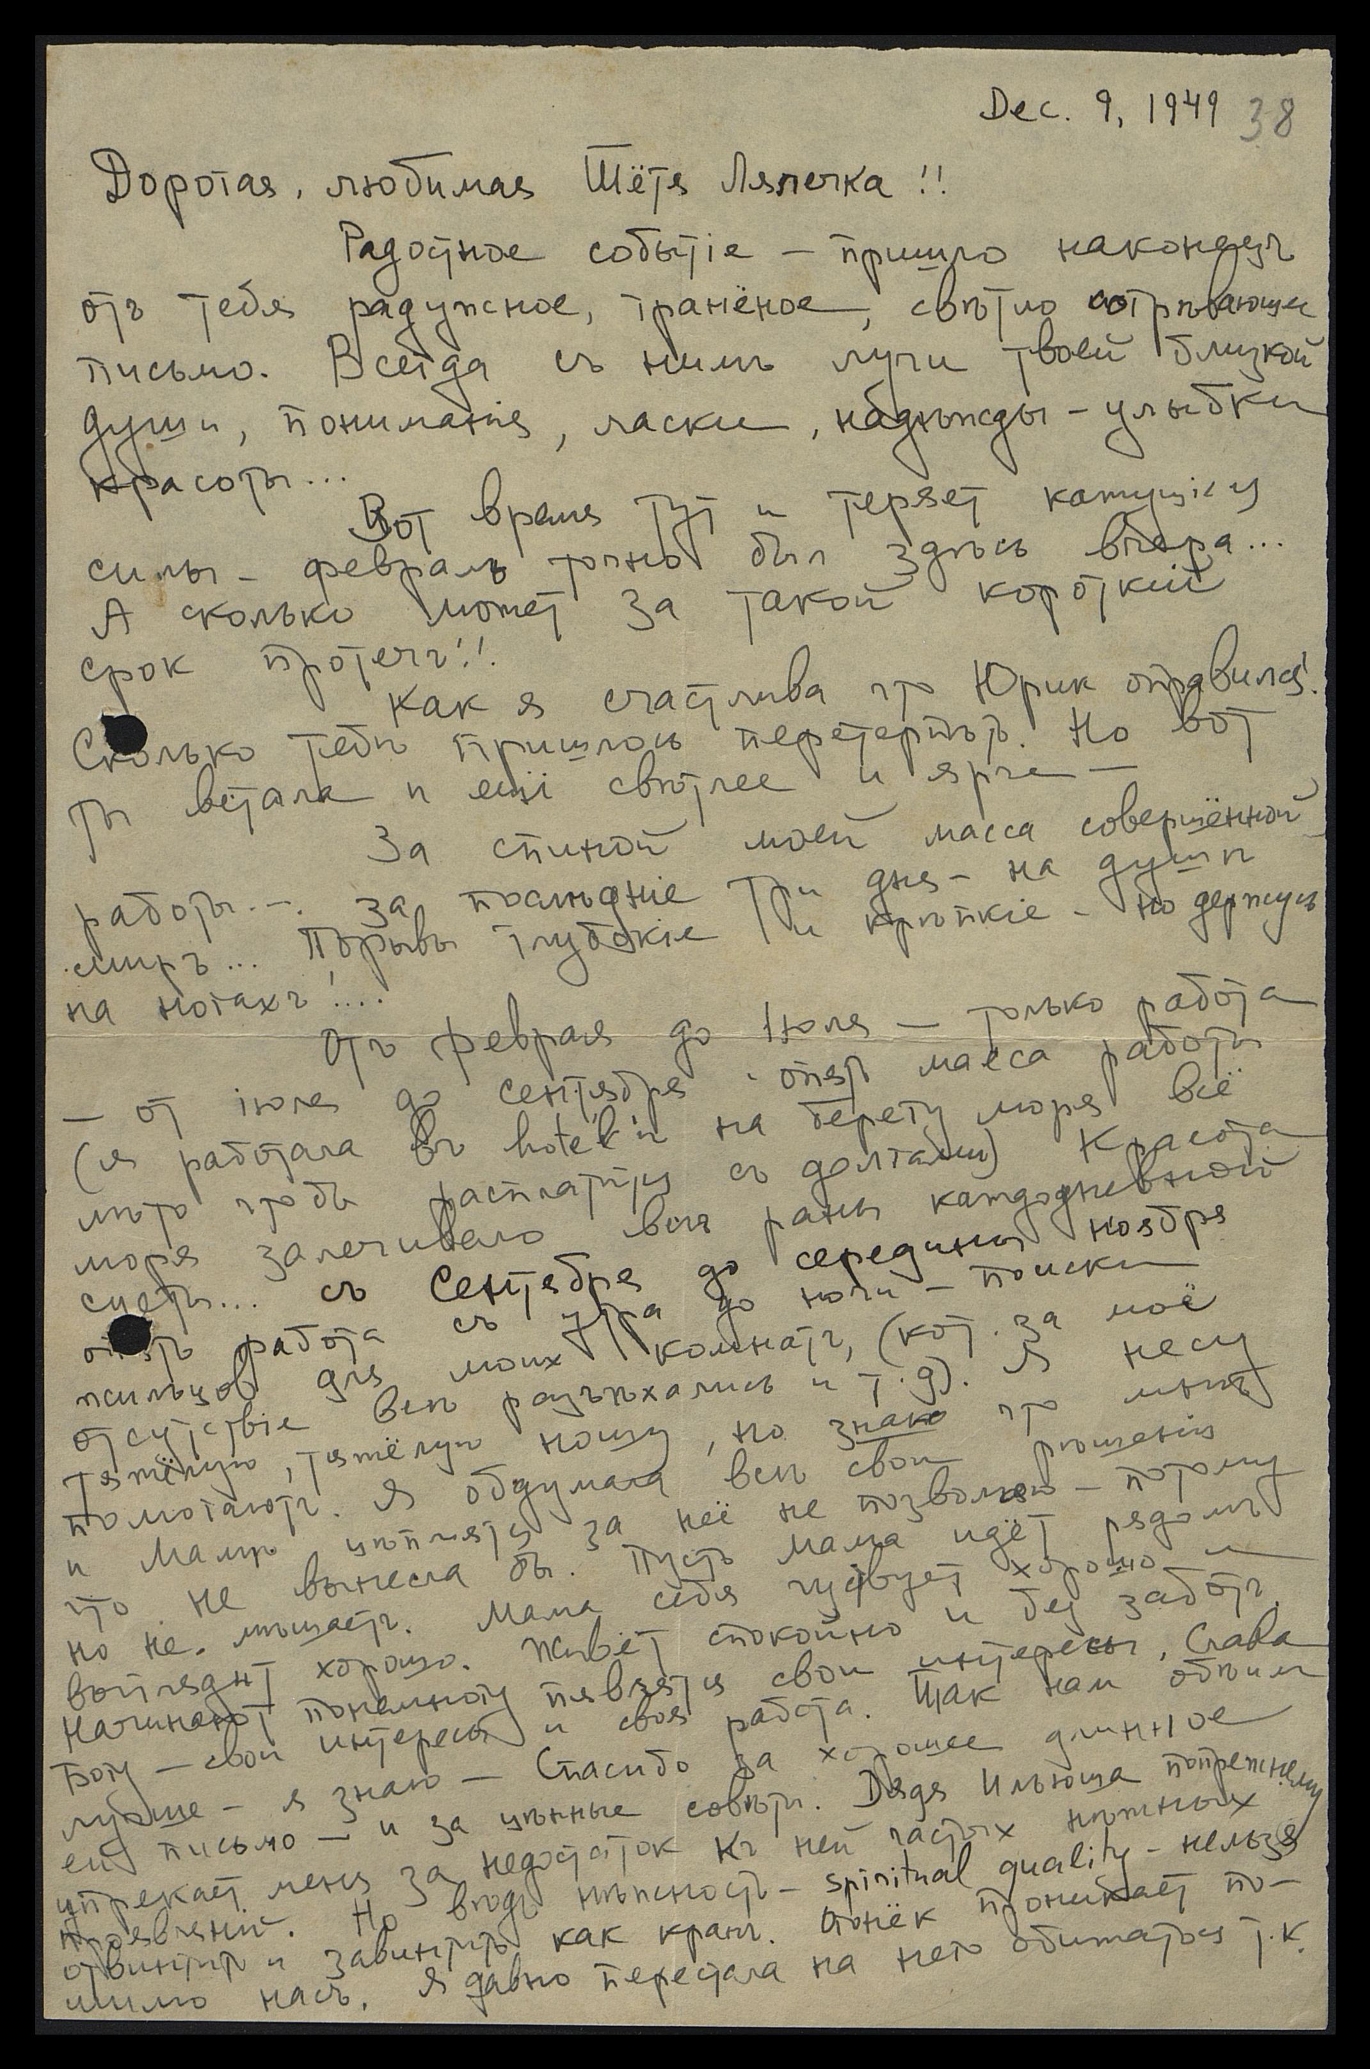 Dec. 9, 1949 38
Дорогая, любимая Тётя Ляпечка!!
Радостное событіе — пришло наконецъ
отъ тебя радужное, гранёное, свѣтло согрѣвающее
письмо. Всегда съ нимъ лучи твоей близкой
души, пониманія, ласки, надѣжды - улыбки
красоты...
Вот время тут и теряет
силы - февраль точно был здѣсь вчера...
А сколько может за такой короткій
срок протечь!!
Как я счастлива что Юрик оправился!
Сколько тебѣ пришлось перетерпѣть. Но вот
ты встала и ещё свѣтлее и ярче —
За спиной моей масса совершённой
работы. —. За послѣдніе три дня - на душѣ
миръ... Порывы глубокіе и крѣпкіе - но держусь
на ногахъ!....
Отъ февраля до Іюля — только работа
— от іюля до сентября - опять масса работы
(я работала въ hotel'ѣ на берегу моря всё
лѣто чтобы расплатиться съ долгами) Красота
моря залечивало всѣ раны каждодневной
суеты... съ Сентября до середины ноября
опять работа съ утра до ночи - поиски
жильцов для моих комнатъ, (кот. за моё
отсутствіе всѣ разъѣхались и т.д). Я несу
тяжёлую, тяжёлую ношу, но знаю что мнѣ
помогаютъ. Я обдумала всѣ свои рѣшенія
и Мамѣ цѣпляться за неё не позволяю - потому
что не вынесла бы. Пусть мама идёт рядомъ
но не мѣшаетъ. Мама себя чуствует хорошо и
выглядит хорошо. Живёт спокойно и без заботъ.
Начинают понемногу появлятся свои интересы, Слава
Богу - свои интересы и своя работа. Так нам обѣим
лучше - я знаю — Спасибо за хорошее длинное
ей письмо — и за цѣнные совѣты. Дядя Ильюша попрежнему
упрекает меня за недостаток къ ней частых нѣжных
проявленій. Но вѣдь нѣжность - spiritual quality - нельзя
отвинтить и завинтить как кранъ. Огонёк проникает по-
мимо насъ. Я давно перестала на него обижаться т.к.